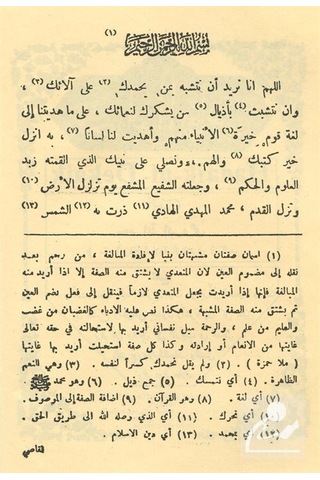 (١)
بسم الله الرحمن الرحيم
اللهم انا نريد أن نتشبه بمن يحمدك (٢) على آلائك (٣) ،
وان نتشبث (٤) بأذيال (٥) من يشكرك لنعمائك ، على ما هديتنا إلى
لغة قوم خيرة (٦) الأنبياء منهم وأهديت لنا لسانا (٧) ، به انزل
خير كتبك (٨) والهم، ونصلي على نبيك الذي القمته زبد
العلوم والحكم (٩) ، وجعلته الشفيع المشفع يوم تزلزل الأرض (١٠)
وتزل القدم ، محمد المهدي الهادي (١١) ذرت به (١٢) الشمس (١٣)
(١) اسمان صفتان مشبهتان بنيا لإفادة المبالغة ، من رحم بعد
نقله إلى مضموم العين لان المتعدي لا يشتق منه الصفة إلا اذا أريد منه
المبالغة فإنها إذا أريدت يجعل المتعدي لازماً فينقل إلى فعل بضم العين
ثم يشتق منه الصفة المشبهة ، هكذا نص عليه الادباء كالغضبان من غضب
والعليم من علم ، والرحمة ميل نفساني أريد بها لاستحالته في حقه تعالى
غايتها من الانعام أو إرادته وكذا كل صفة استحيلت أريد بها غايتها
( ملا حمزة ) . (٢) ولم يقل نحمدك كسراً لنفسه . (٣) وهي النعم
الظاهرة . (٤) أي نتمسك . (٥) جمع ذيل . (٦) وهو محمد ﷺ .
(٧) أي لغة . (٨) وهو القرآن . (٩) اضافة الصفة إلى الموصوف .
(١٠) أي تحرك . (١١) أي الذي رحمه الله الى طريق الحق .
(١٢) أي بمحمد . (١٣) أي دين الاسلام .